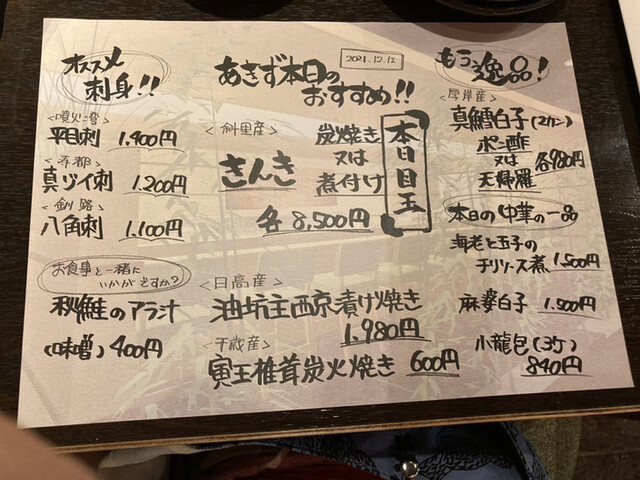 オススメ
刺身!!
<噴火湾>
平目刺 1.400円
<寿都>
真ゾイ刺 1.200円
<釧路>
八角刺 1.100円
お食事と一緒に
いかがですか?
秋鮭のアラ汁
(味噌) 400円
2021.12.12
あきず本日の
おすすめ!!
<斜里産>
きんき
炭焼き
又は
煮付け
各8,500円
本日目玉
<日高産>
油坊主西京漬け焼き
1.980円
<千歳産>
寅王椎茸炭火焼き 600円
もう一逸品!
<厚岸産>
真鱈白子(2カン)
ポン酢
又は 各980円
天婦羅
本日の中華の一品
海老と玉子の
チリソース煮 1.500円
麻婆白子 1.500円
小龍包(3ケ)
840円